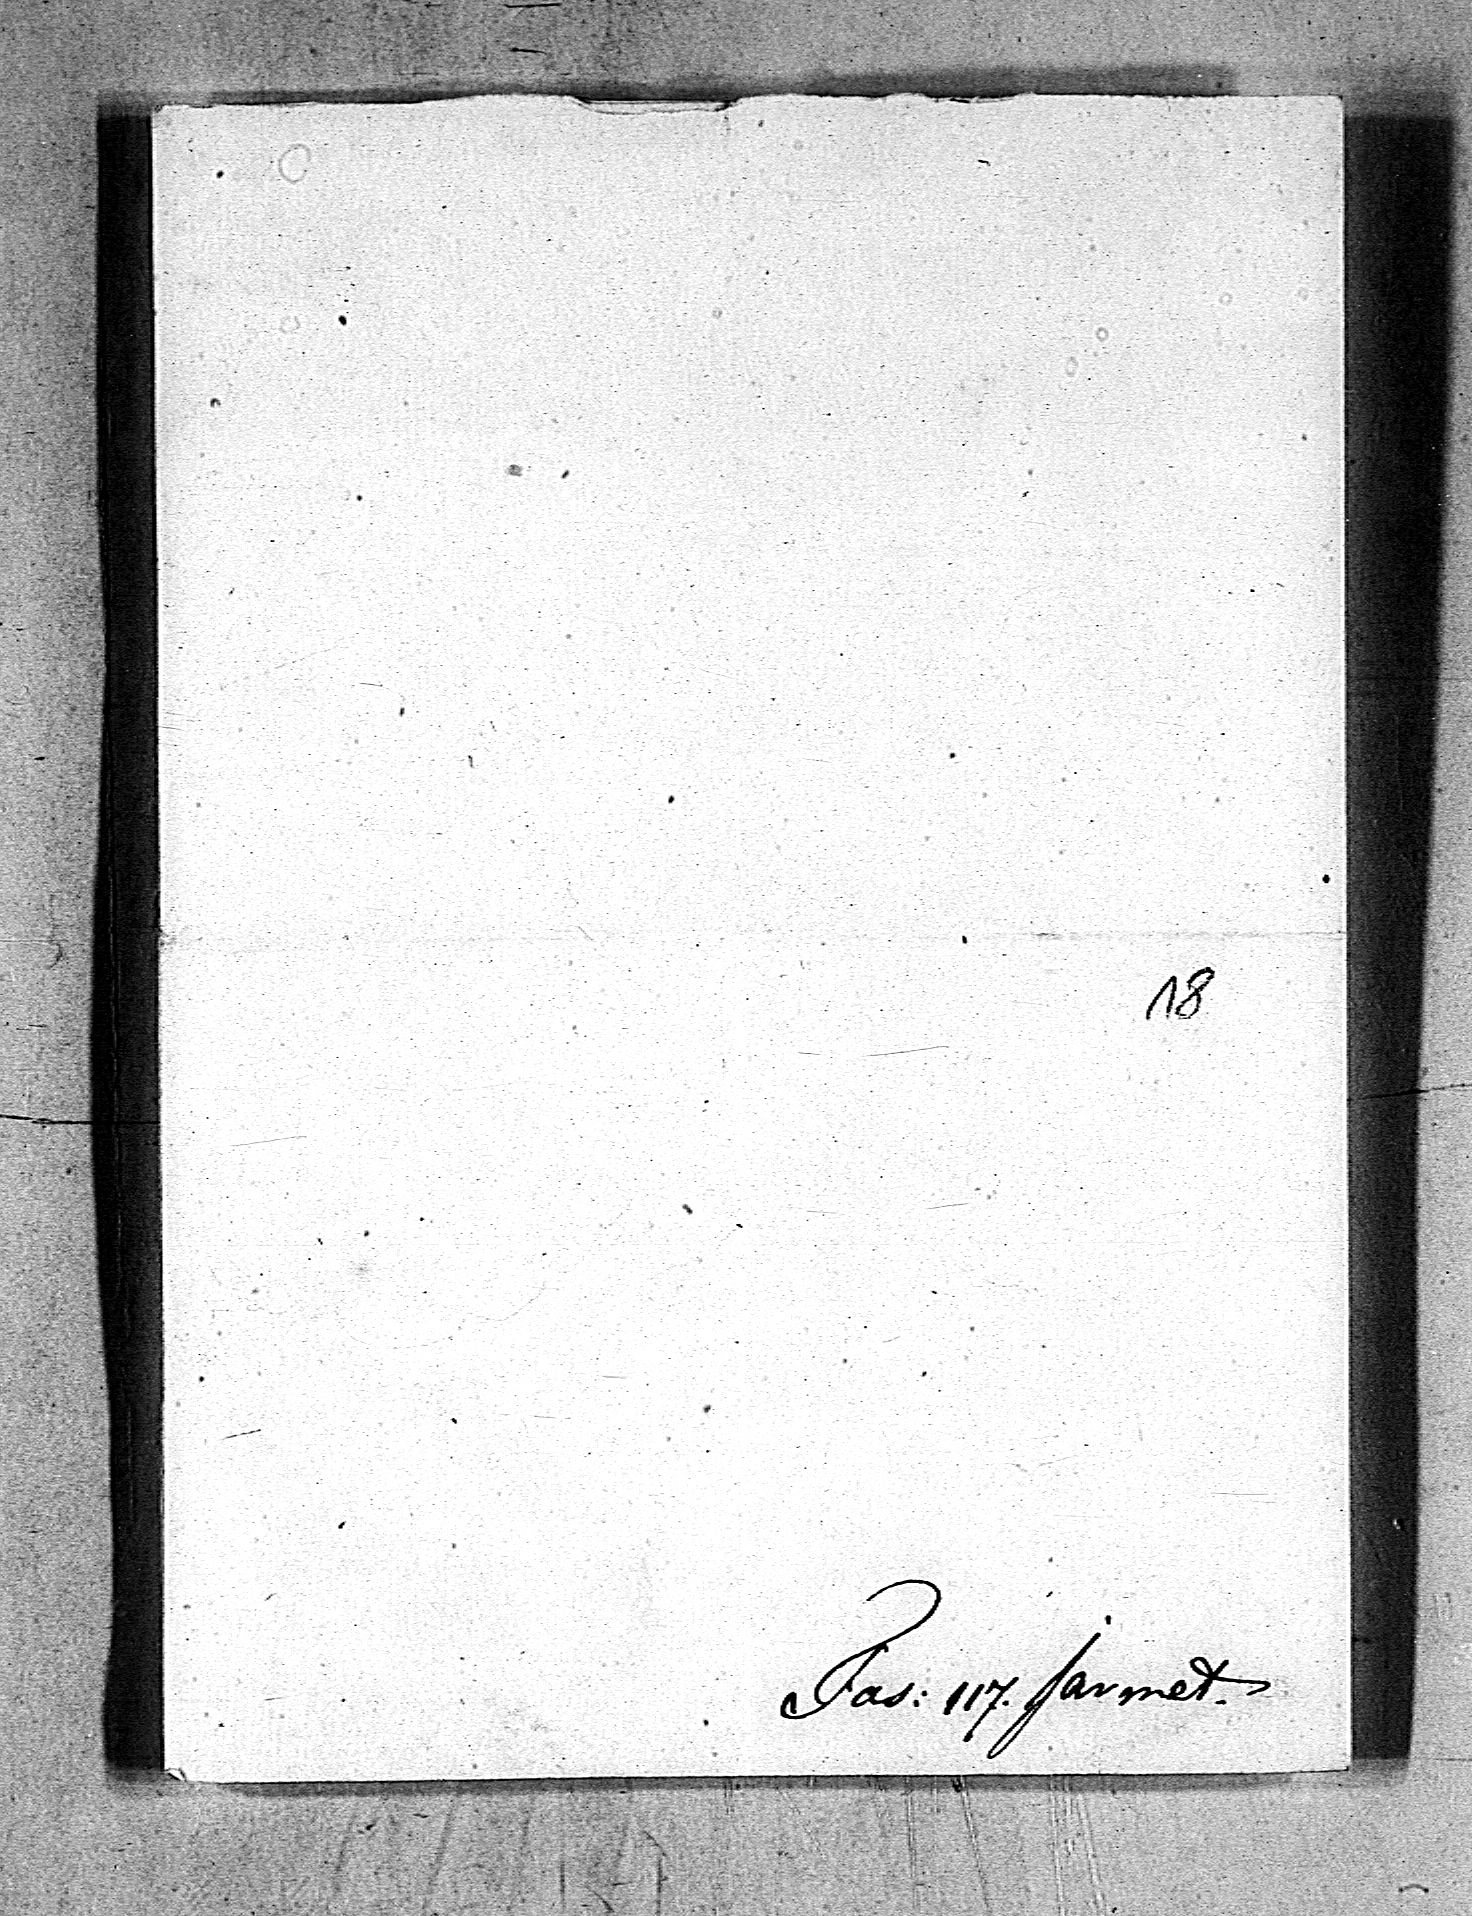 18
Fas: 117. jármet.